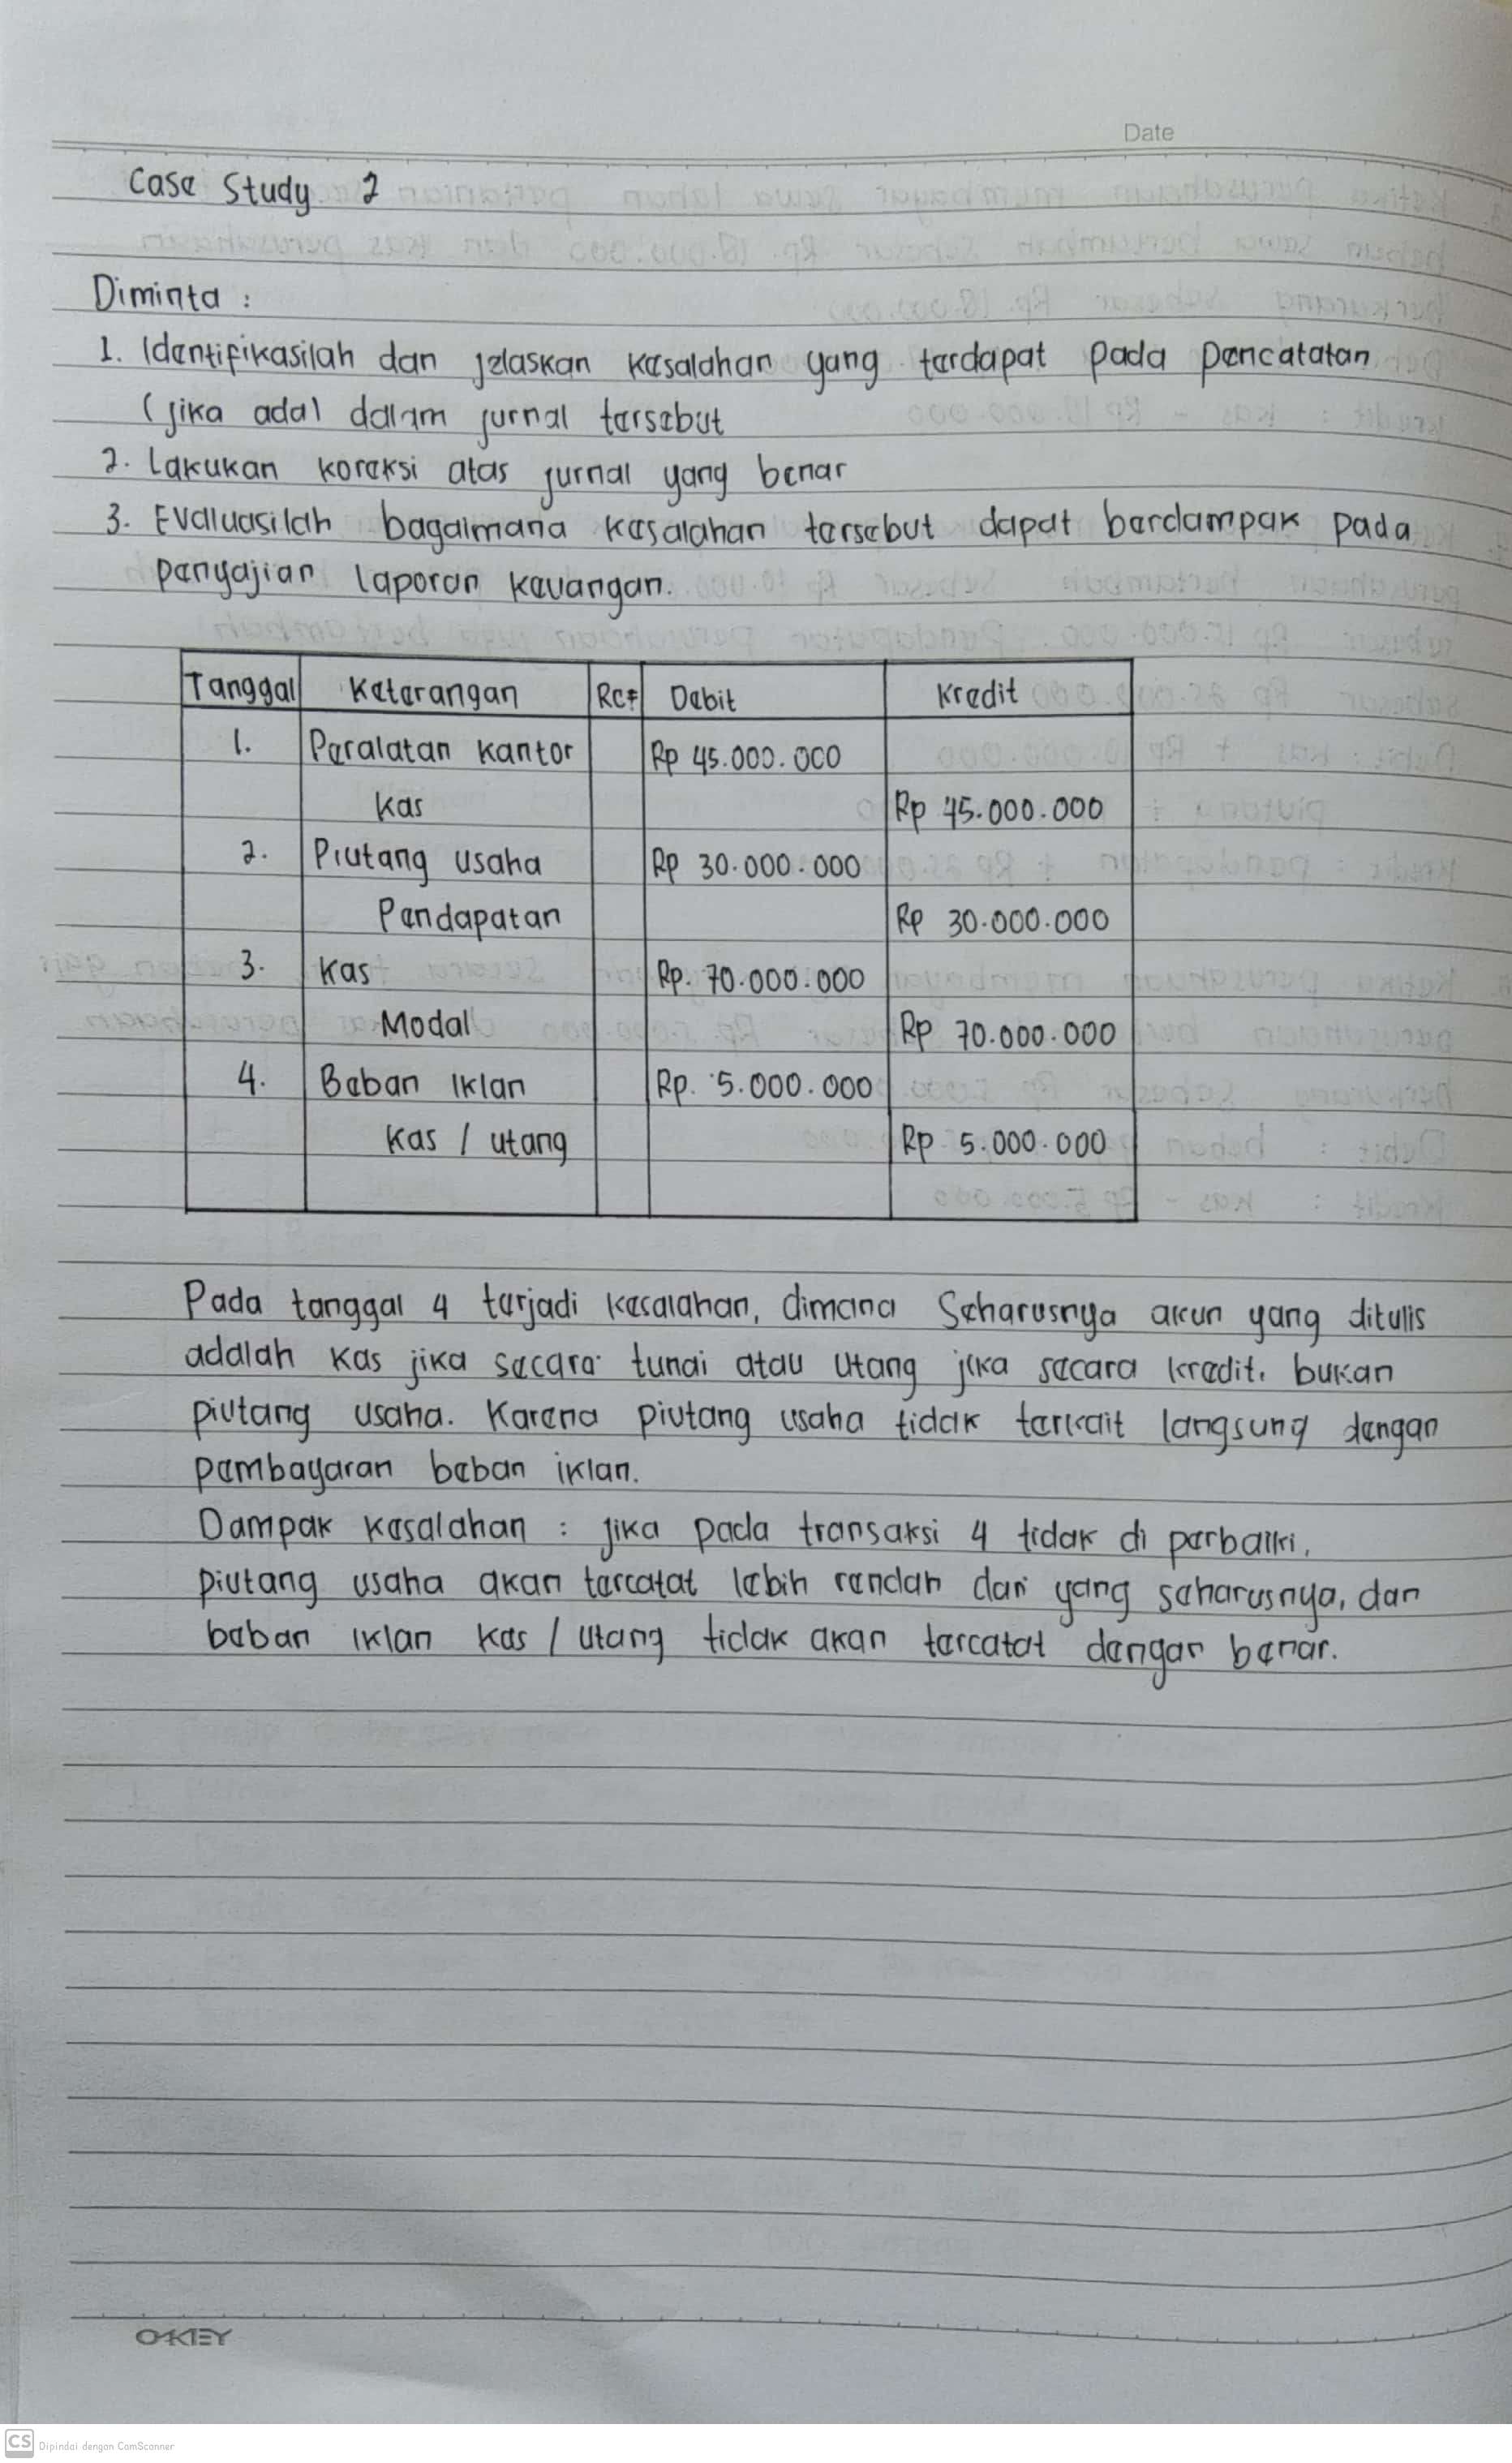 Date
Case Study 2
Diminta :
1. Identifikasilah dan jelaskan kesalahan yang terdapat pada pencatatan
(jika ada) dalam jurnal tersebut
2. Lakukan koreksi atas jurnal yang benar
3. Evaluasilah bagaimana kesalahan tersebut dapat berdampak pada
penyajian laporan keuangan.
Tanggal Keterangan Ref Debit Kredit
1. Peralatan kantor Rp 45.000.000
Kas Rp 45.000.000
2. Piutang usaha Rp 30.000.000
Pendapatan Rp 30.000.000
3. Kas Rp. 70.000.000
Modal Rp 70.000.000
4. Beban Iklan Rp. 5.000.000
Kas / utang Rp 5.000.000
Pada tanggal 4 terjadi kesalahan, dimana Seharusnya akun yang ditulis
adalah kas jika secara tunai atau utang jika secara kredit. bukan
piutang usaha. Karena piutang usaha tidak terkait langsung dengan
pembayaran beban iklan.
Dampak kesalahan : jika pada transaksi 4 tidak di perbaiki,
piutang usaha akan tercatat lebih rendah dari yang seharusnya, dan
beban iklan kas / utang tidak akan tercatat dengan benar.
OKEY
CS Dipindai dengan CamScanner